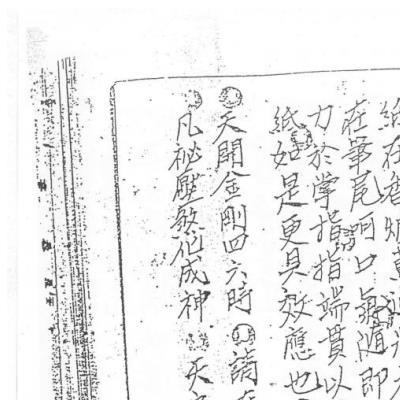 在香
在筆尾呵口氣隨即
力於掌指指端貫以
紙如是更具效應也
天開金剛四六時
凡祕壓煞化成神 天